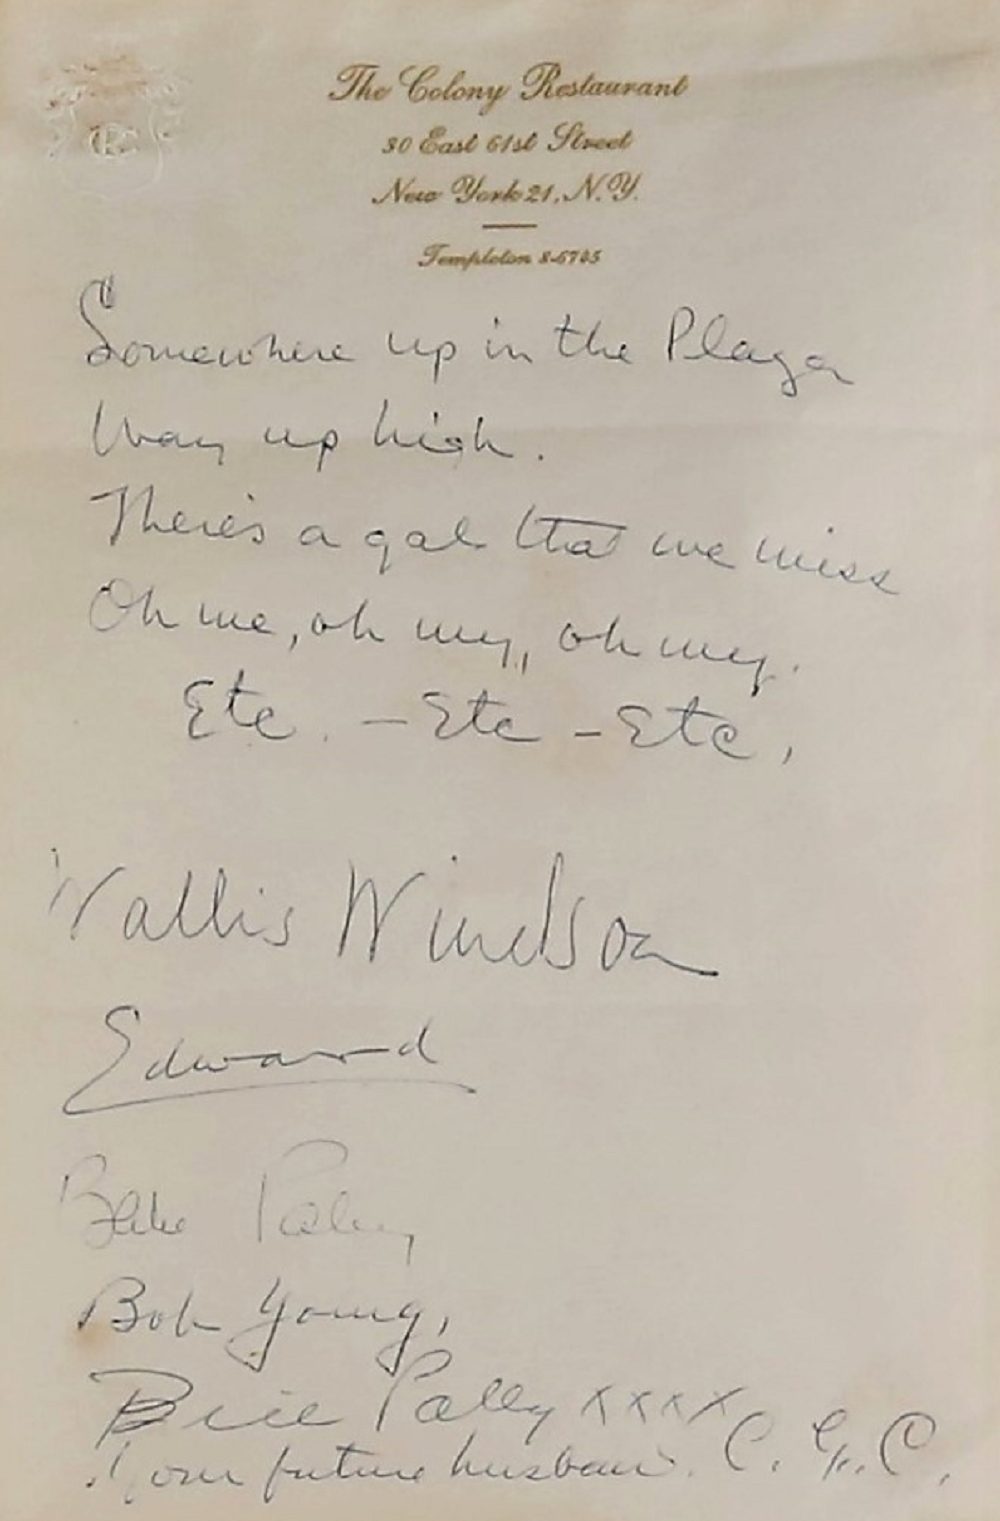 The Colony Restaurant
30 East 61st Street
New York 21, N.Y.
Templeton 8-6745
Somewhere up in the Plaza
Way up high.
There's a gal that we miss
Oh me, oh my, oh my.
Etc. - Etc - Etc.
Wallis Windsor
Edward
Babe Paley
Bob Young,
Bill Palley xxxx
Your future husban. C. G. C.